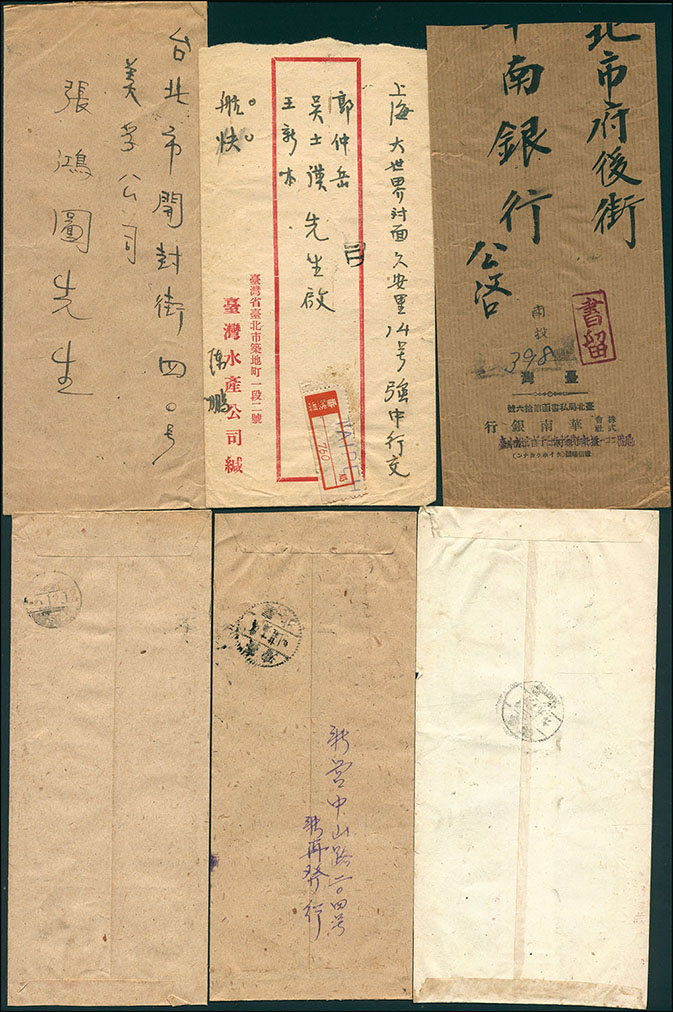 台北市開封街四○号
美孚公司
張鴻圖先生
上海大世界対面久安里14号強中行交
郭仲岳
吳士漢先生啟
王新
航
快
臺灣省臺北市築地町一段二號
臺灣水產公司緘
陳鵬
760
北市府後街
南銀行
公啓
書留
南投
398
臺灣
臺北局私書函第拾六號
株式會社華南銀行
新营中山路二○四号
新再發行